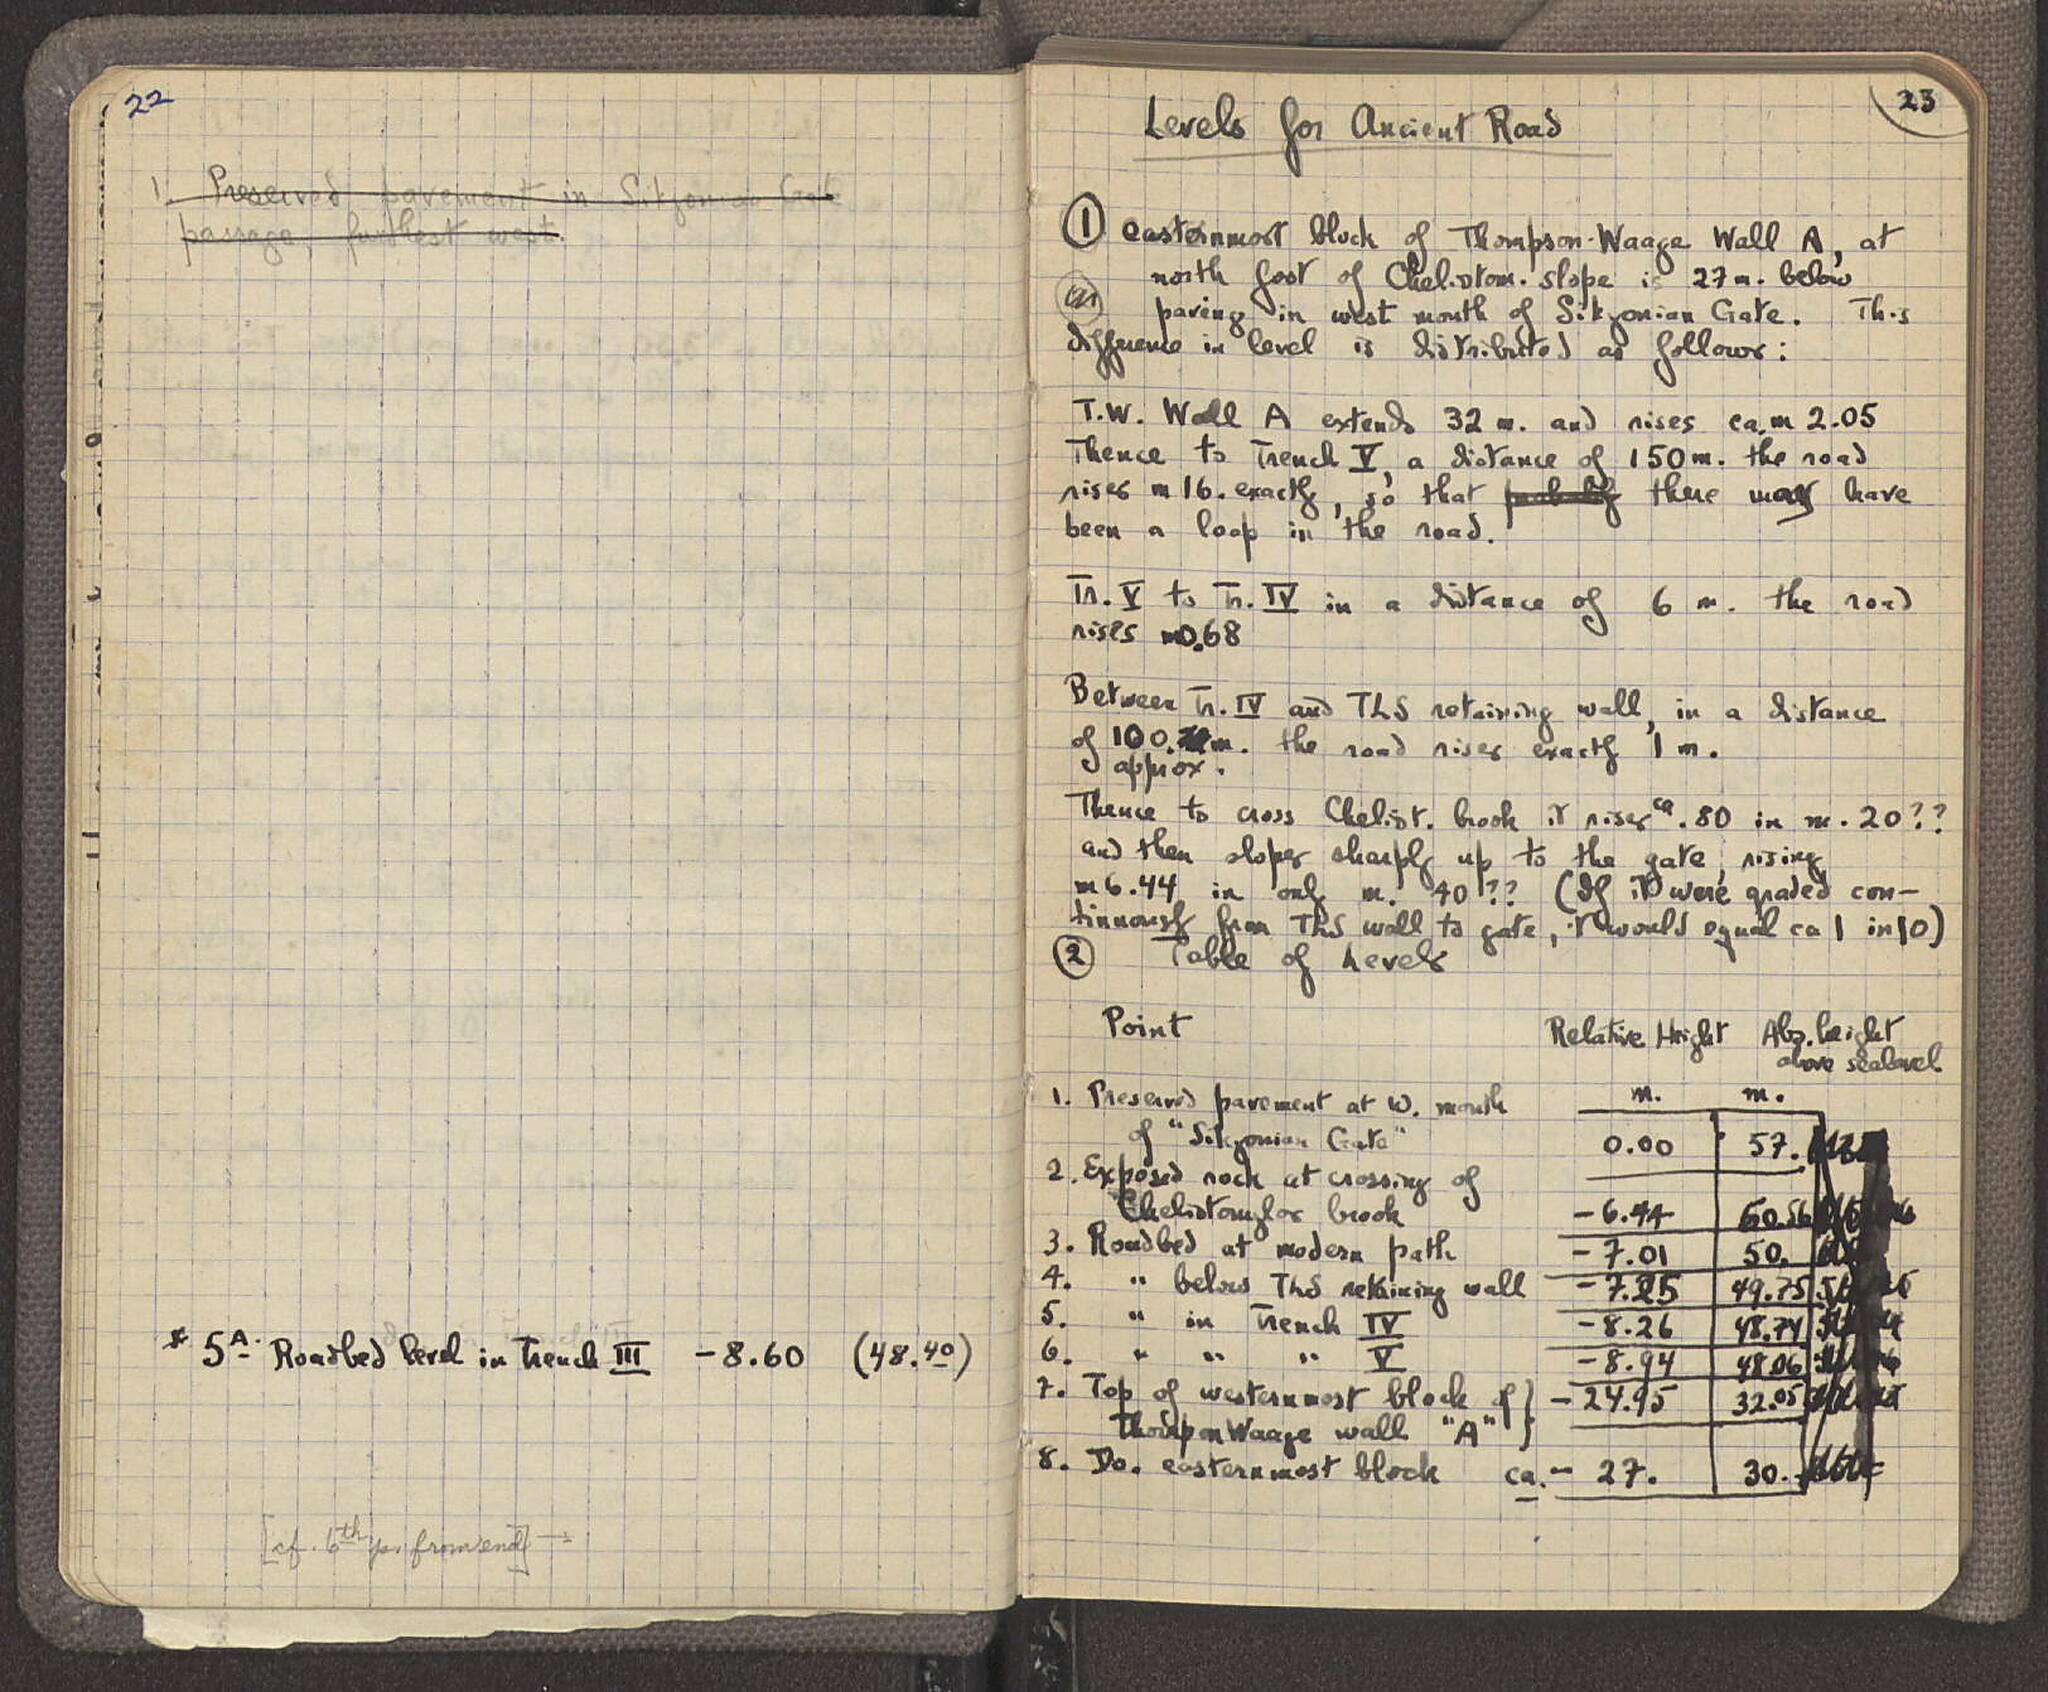 22
1. Preserved pavement in Sikyonian Gate
passage, furthest west.
* 5A. Roadbed level in Trench III -8.60 (48.40)
[cf. 6th p. from end] →
23
Levels for Ancient Road
① easternmost block of Thompson-Waage Wall A, at
north foot of Cheliotom. slope is 27 m. below
paving in west mouth of Sikyonian Gate. This
difference in level is distributed as follows:
T.W. Wall A extends 32 m. and rises ca. m 2.05
Thence to Trench V, a distance of 150 m. the road
rises m 16. exactly, so that probably there may have
been a loop in the road.
Tr. V to Tr. IV in a distance of 6 m. the road
rises m0.68
Between Tr. IV and TLS retaining wall, in a distance
of 100. m. the road rises exactly 1 m.
approx.
Thence to cross Cheliot. brook it rises ca .80 in m. 20??
and then slopes sharply up to the gate, rising
m 6.44 in only m. 40?? (If it were graded con-
tinuously from TLS wall to gate, it would equal ca 1 in 10)
② Table of Levels
Point Relative Height Abs. height
above sealevel
m. m.
1. Preserved pavement at W. mouth
of "Sikyonian Gate" 0.00 57.
2. Exposed rock at crossing of
Cheliotomylos brook -6.44 50.56
3. Roadbed at modern path -7.01 50.
4. " below TLS retaining wall -7.25 49.75
5. " in Trench IV -8.26 48.74
6. " " " V -8.94 48.06
7. Top of westernmost block of } -24.95 32.05
Thompson Waage wall "A"
8. Do. easternmost block ca. - 27. 30.